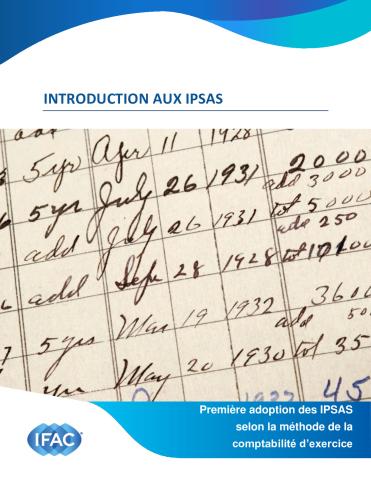 INTRODUCTION AUX IPSAS
5 yr Apr 11 1928
5 yr July 26 1931 2000
add 3000
add July 26 1931 tot 5000
add 250
add Sept 28 1928 tot
5 yrs Mar 19 1932 3600
add
yrs May 20 1930 tot 35
45
Première adoption des IPSAS
selon la méthode de la
comptabilité d'exercice
IFAC